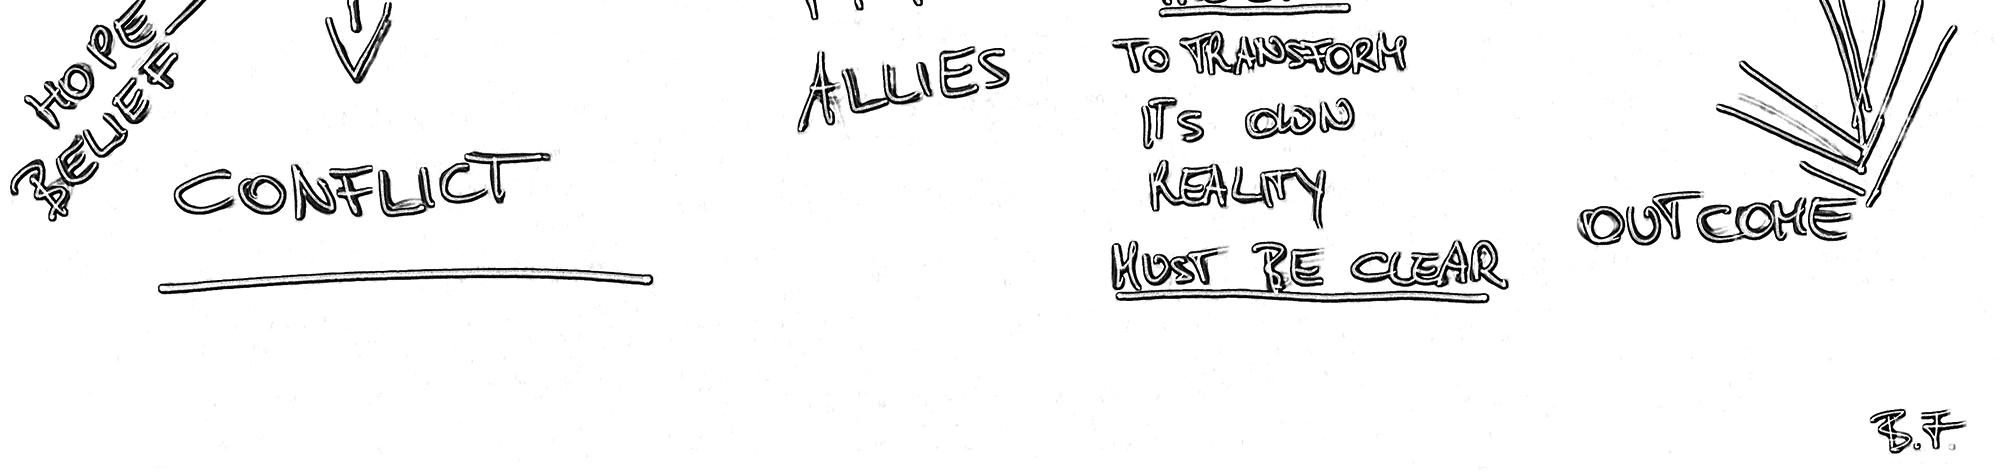 HOPE
BELIEF
CONFLICT
ALLIES
TO TRANSFORM
ITS OWN
REALITY
MUST BE CLEAR
OUTCOME
B.F.